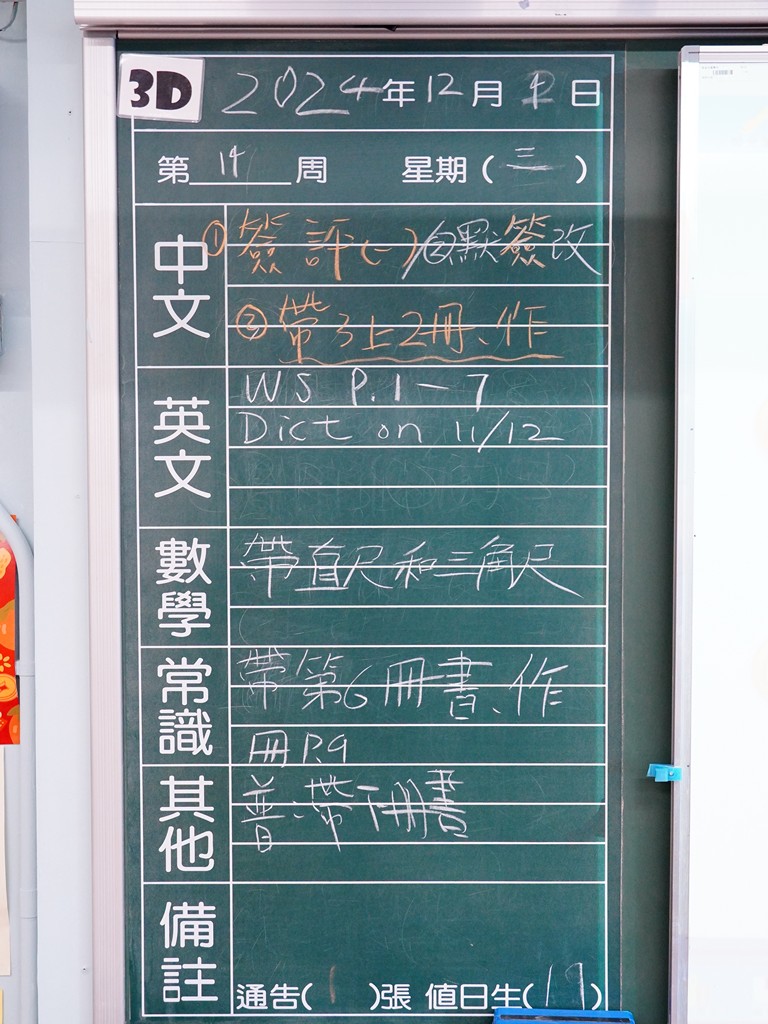 3D 2024年12月4日
第14周 星期(三)
中文
①簽評(一)②默簽改
③帶3上2冊、作
英文
WS P.1-7
Dict on 11/12
數學
帶直尺和三角尺
常識
帶第6冊書、作
冊P.9
其他
普、帶下冊書
備註
通告(1)張 值日生(17)